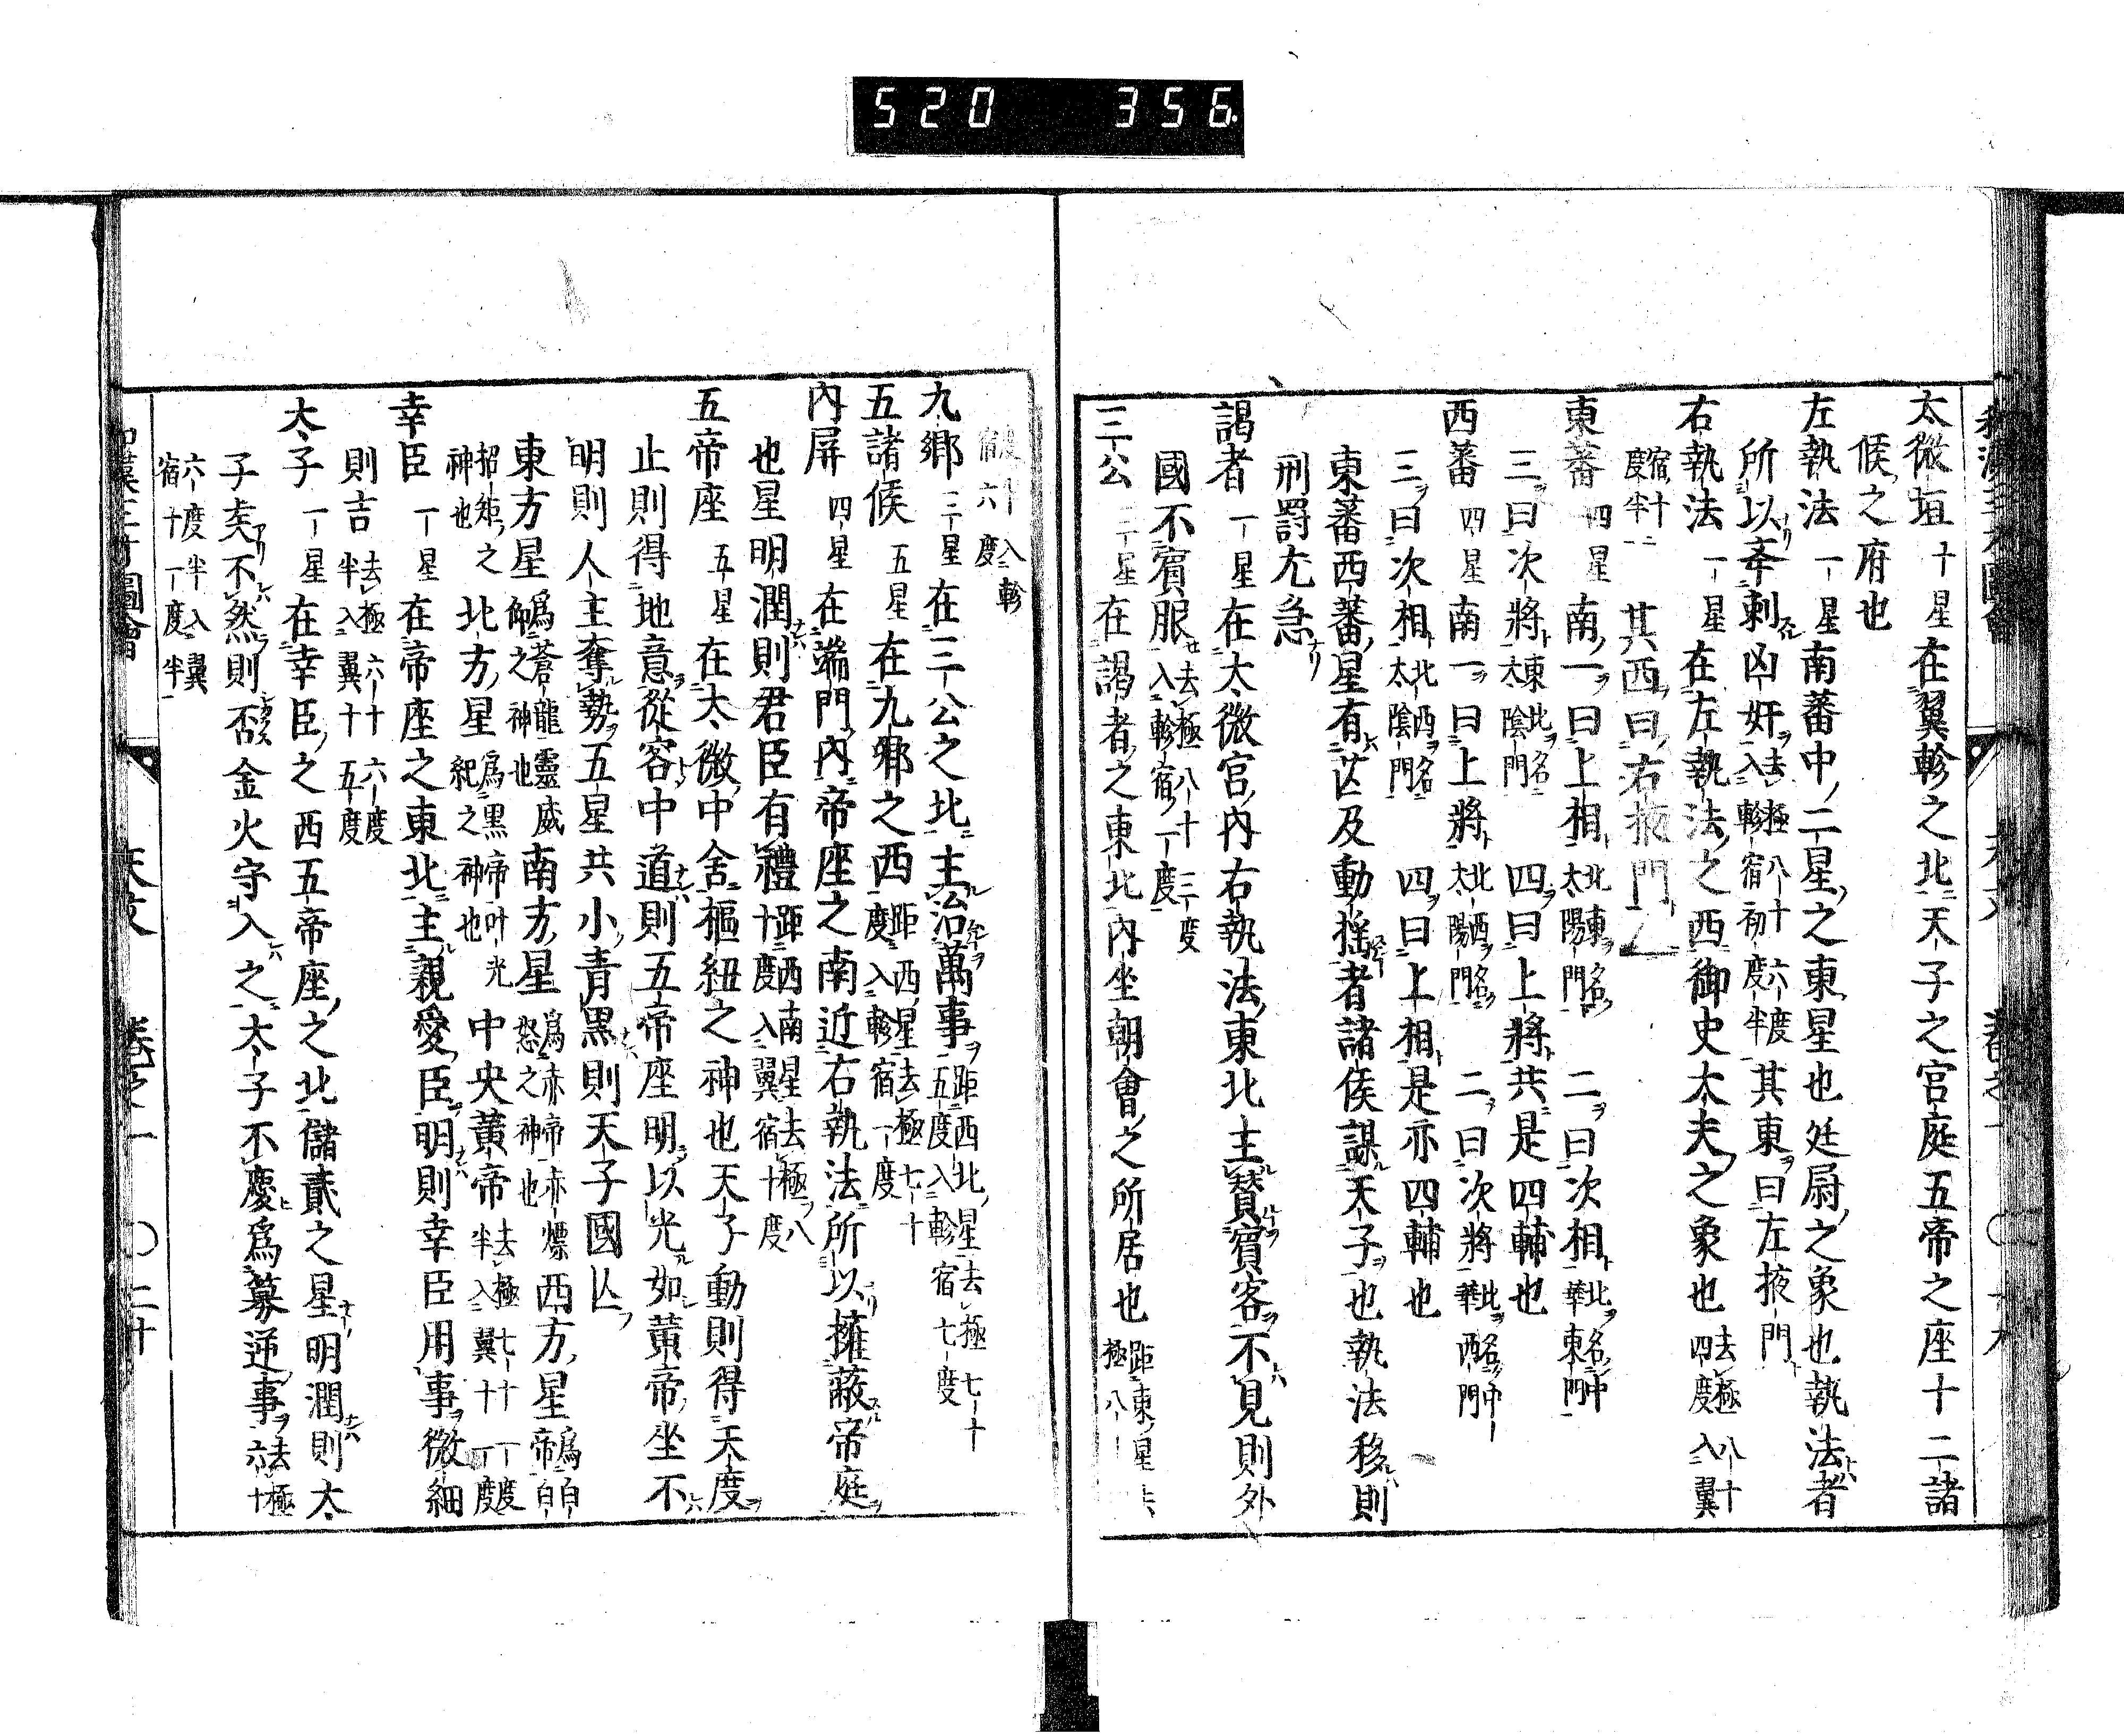 520 356
太微垣十星在翼軫之北天子之宮庭五帝之座十二諸
候之府也
左執法一星南蕃中二星之東星也廷尉之象也執法者
所以夲刺凶奸去極八十六度入軫宿初度半其東曰左掖門
右執法一星在左執法之西御史太夫之象也去極八十四度入翼
宿十度半其西曰右掖門
東蕃四星南一曰上相北東名太陽門二曰次相北名中華東門
三曰次將東北名太陰門四曰上將共是四輔也
西蕃四星南一曰上將北西名太陽門二曰次將北名中華西門
三曰次相北西名太陰門四曰上相是亦四輔也
東蕃西蕃星有芒及動搖者諸侯謀天子也執法移則
刑罸尤急
謁者一星在太微宮內右執法東北主賛賓客不見則外
國不賓服去極八十三度入軫宿一度
三公三星在謁者之東北內坐朝會之所居也距東星去極八
宿六度
九鄉三星在三公之北主治萬事距西北星去極七十五度入軫宿七度
五諸候五星在九鄉之西距西星去極七十度入軫宿一度
內屏四星在端門內帝座之南近右執法所以擁蔽帝庭
也星明潤則君臣有禮距西南星去極八十度入翼宿十度
五帝座五星在太微中舍樞紐之神也天子動則得天度
止則得地意從容中道則五帝座明以光如黃帝坐不
明則人主奪勢五星共小青黑則天子國亾
東方星爲蒼龍靈威仰之神也南方星爲赤帝赤熛怒之神也西方星爲白帝白
招矩之神也北方星爲黒帝叶光紀之神也中央黃帝去極七十一度半入翼十一度
幸臣一星在帝座之東北主親愛臣明則幸臣用事微細
則吉去極六十六度半入翼十五度
太子一星在幸臣之西五帝座之北儲貳之星明潤則太
子矣不然則否金火守入之太子不慶爲篡逆事去極六十
六度半入翼宿十一度半
天文 卷之一 〇二十